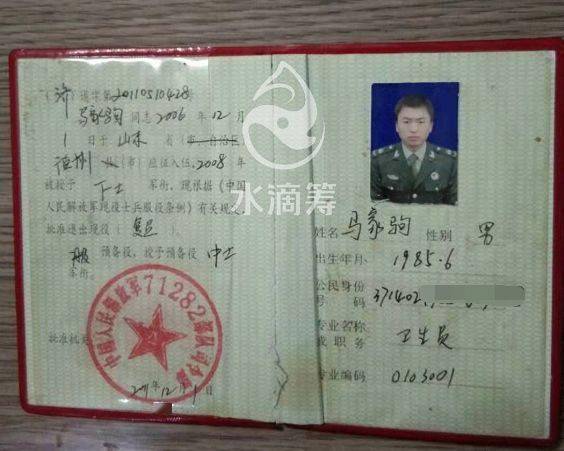 (济)退字第20110510428号
马家驹 同志2006年12月
1日于山东省(市、自治区)
德州县(市)应征入伍,2008年
被授予下士军衔。现根据《中国
人民解放军现役士兵服役条例》有关规定,
批准退出现役(复员)
服预备役,授予预备役中士
军衔。
批准机关
中国人民解放军71282部队司令部
2011年12月1日
水滴筹
姓名 马家驹 性别 男
出生年月 1985.6
公民身份
号码 371402
专业名称
或职务 卫生员
专业编码 0103001